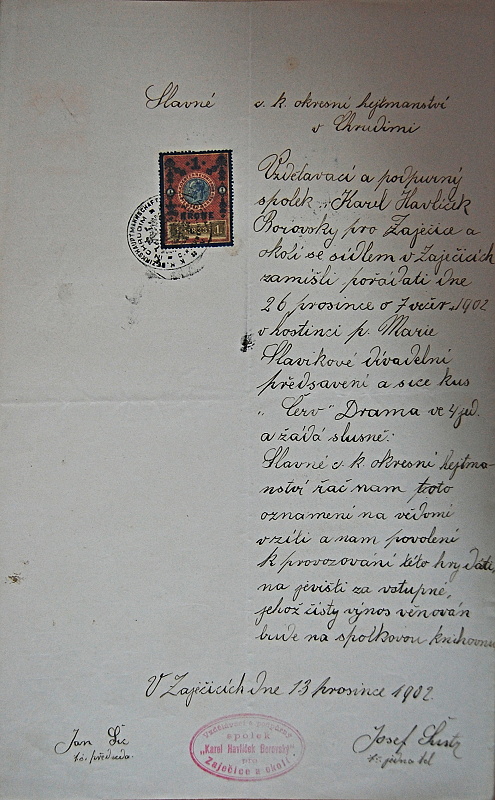 Slavné c. k. okresní hejtmanství
v Chrudimi
1
KRONE
Vzdělavací a podpurný
spolek „Karel Havlíček
Borovský pro Zaječice a
okolí se sídlem v Zaječicích
zamíšlí pořádati dne
26 prosince o 7 večer 1902
v hostinci p. Marie
Slavikové divadelní
předsavení a sice kus
„Červ" Drama ve 4 jed.
a žádá slusně:
Slavné c. k. okresní hejtma-
nství rač nam toto
oznamení na vědomí
vzíti a nam povolení
k provozování této hry dáti
na jevišti za vstupné,
jehož čistý výnos věnován
bude na spolkovou knihovnu
V Zaječicích dne 13 prosince 1902.
Jan
t. č. předseda.
Vzdělávací a podpůrný
spolek
„Karel Havlíček Borovský"
pro
Zaječice a okolí
Josef
t. č. jednatel